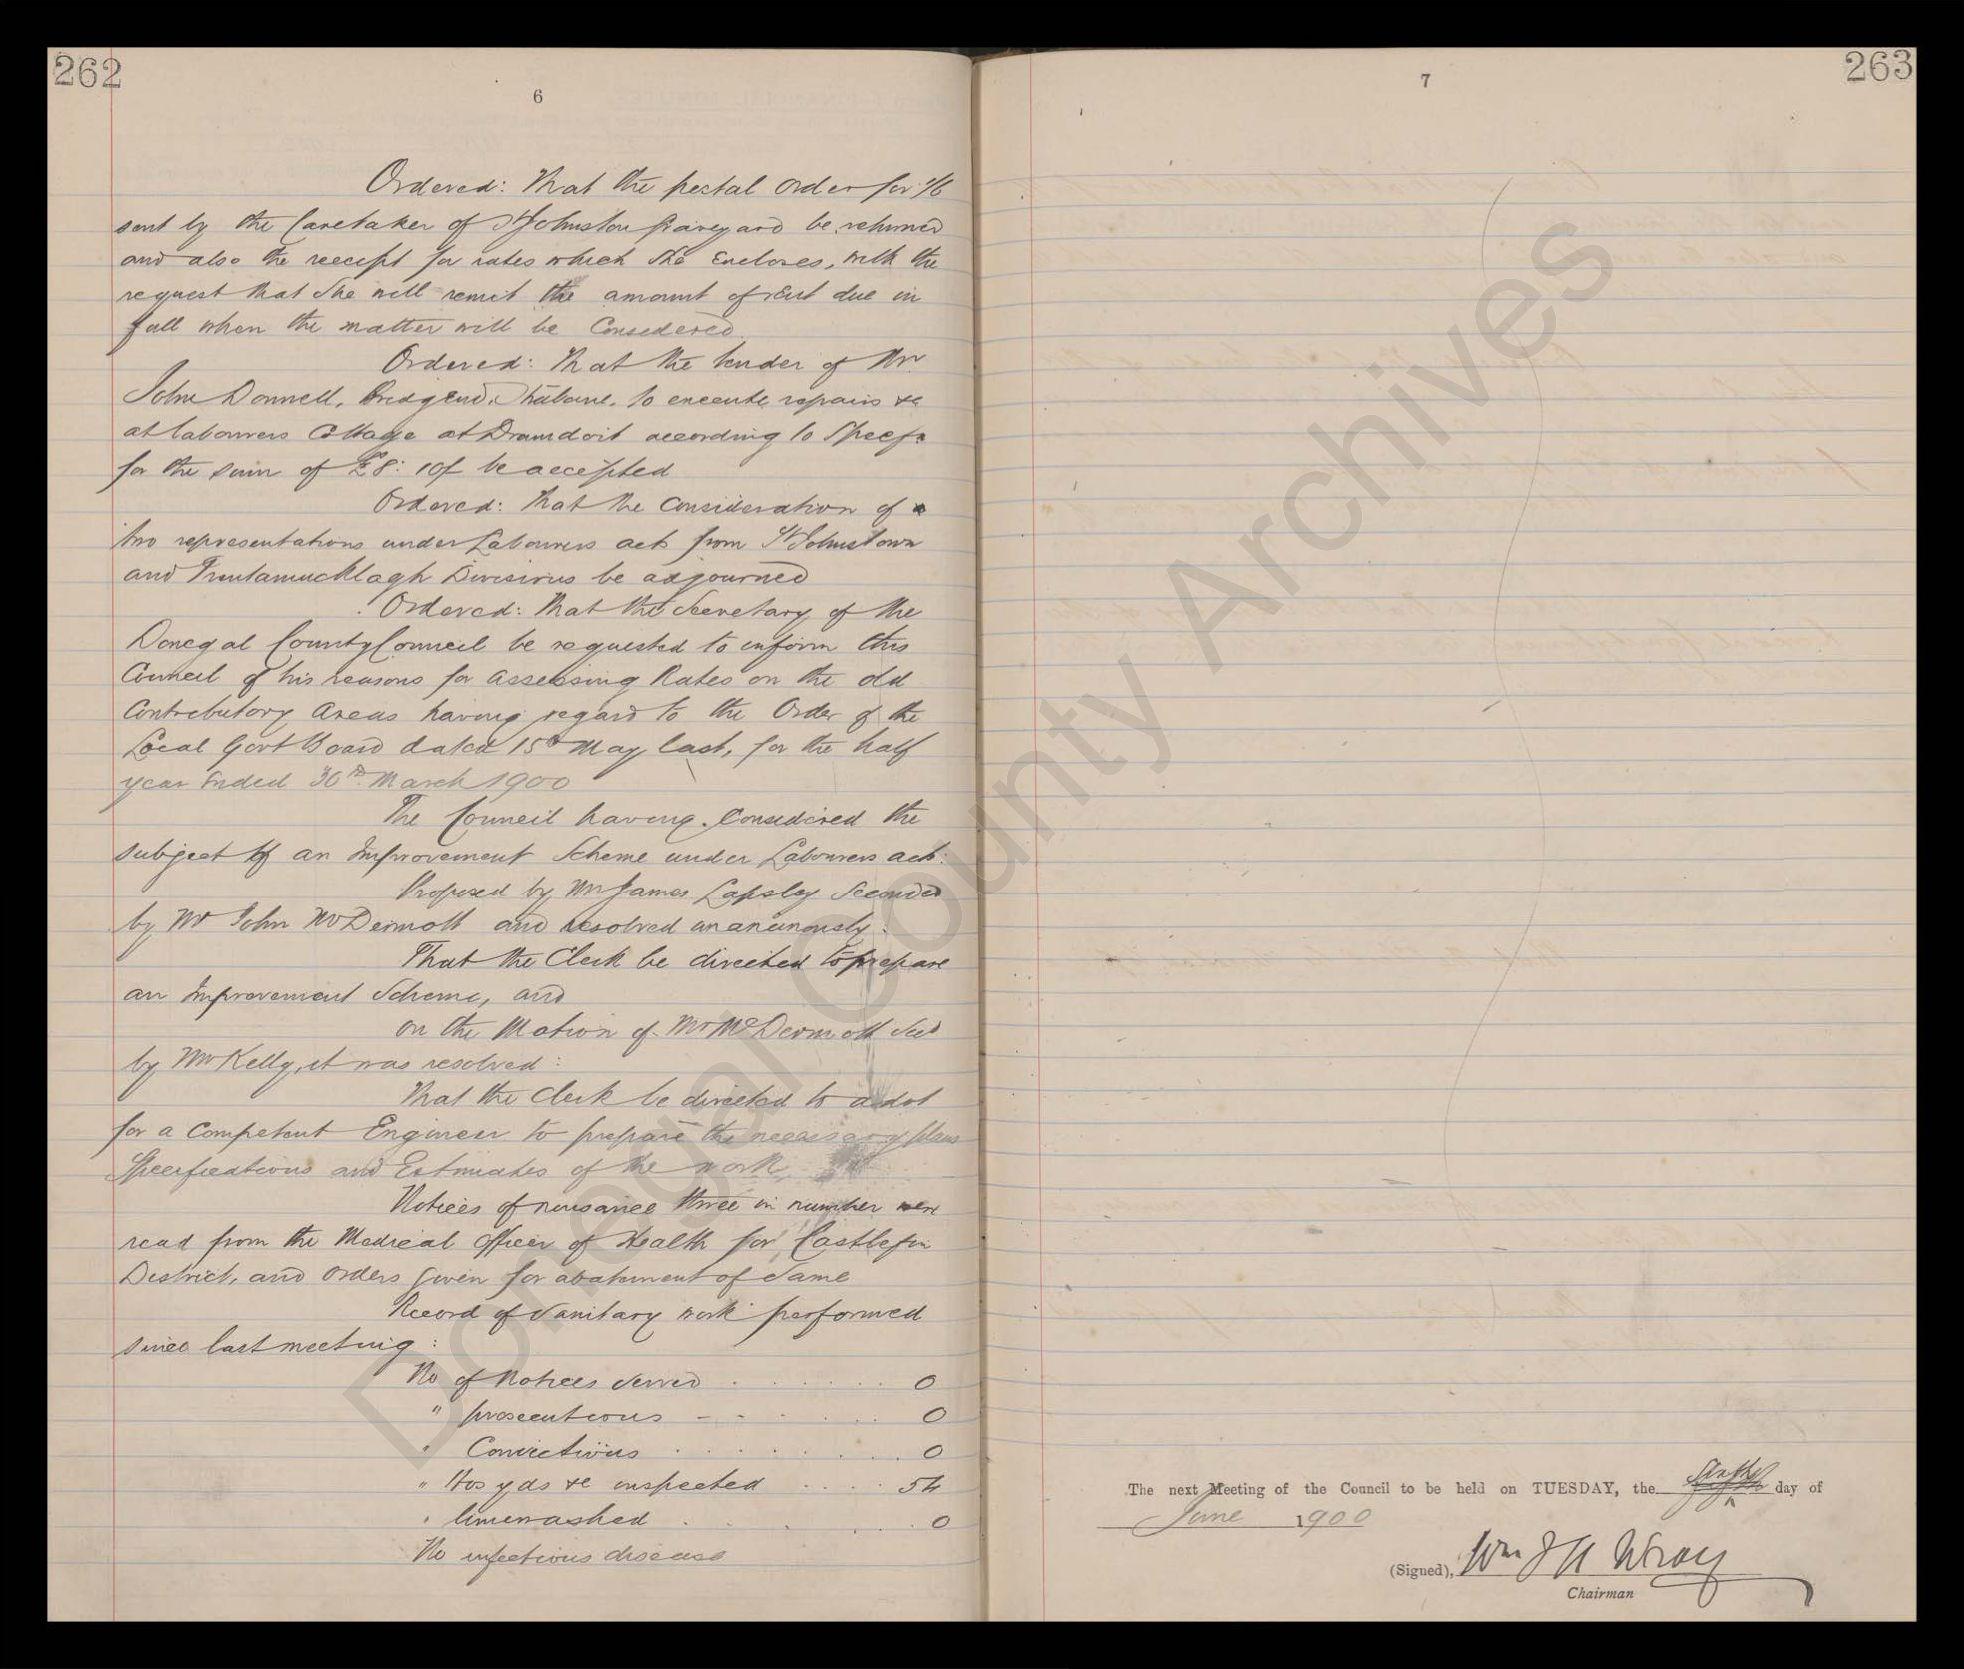 262
6
Ordered: That the postal order for 1/6
sent by the Caretaker of St Johnston Graveyard be returned
and also the receipt for rates which she Encloses, with the
request that she will remit the amount of rent due in
full when the matter will be Considered
Ordered: That the tender of Mr
John Donnell, Bridgend, Strabane, to execute repairs &c
at labourers Cottage at Drumdoit according to Specfn
for the sum of £8: 10/ be accepted
Ordered: That the Consideration of
two representations under Labourers act from St Johnstown
and Treantamucklagh Divisions be adjourned
Ordered: That the Secretary of the
Donegal County Council be requested to inform this
Council of his reasons for assessing Rates on the old
Contributory Areas having regard to the Order of the
Local Govt Board dated 15th May last, for the half
year Ended 30th March 1900
The Council having Considered the
subject of an Improvement Scheme under Labourers act:
Proposed by Mr James Lapsley Seconded
by Mr John McDermott and resolved unanimously:
That the Clerk be directed to prepare
an Improvement Scheme, and
on the Motion of Mr McDermott Secd
by Mr Kelly, it was resolved:
That the Clerk be directed to advt
for a Competent Engineer to prepare the necessary plans
Specifications and Estimates of the work
Notices of nuisance three in number were
read from the Medical Officer of Health for Castlefin
District, and orders given for abatement of Same
Record of Sanitary work performed
since last meeting:
No of Notices served . . . . . . 0
" prosecutions - - . . . . 0
" Convictions . . . . . . 0
" Hos yds &c inspected . . . . 54
" limewashed . . . . . 0
No infectious disease
263
7
The next Meeting of the Council to be held on TUESDAY, the day of
June 1900
(Signed), Wm J H Wray
Chairman
Donegal County Archives